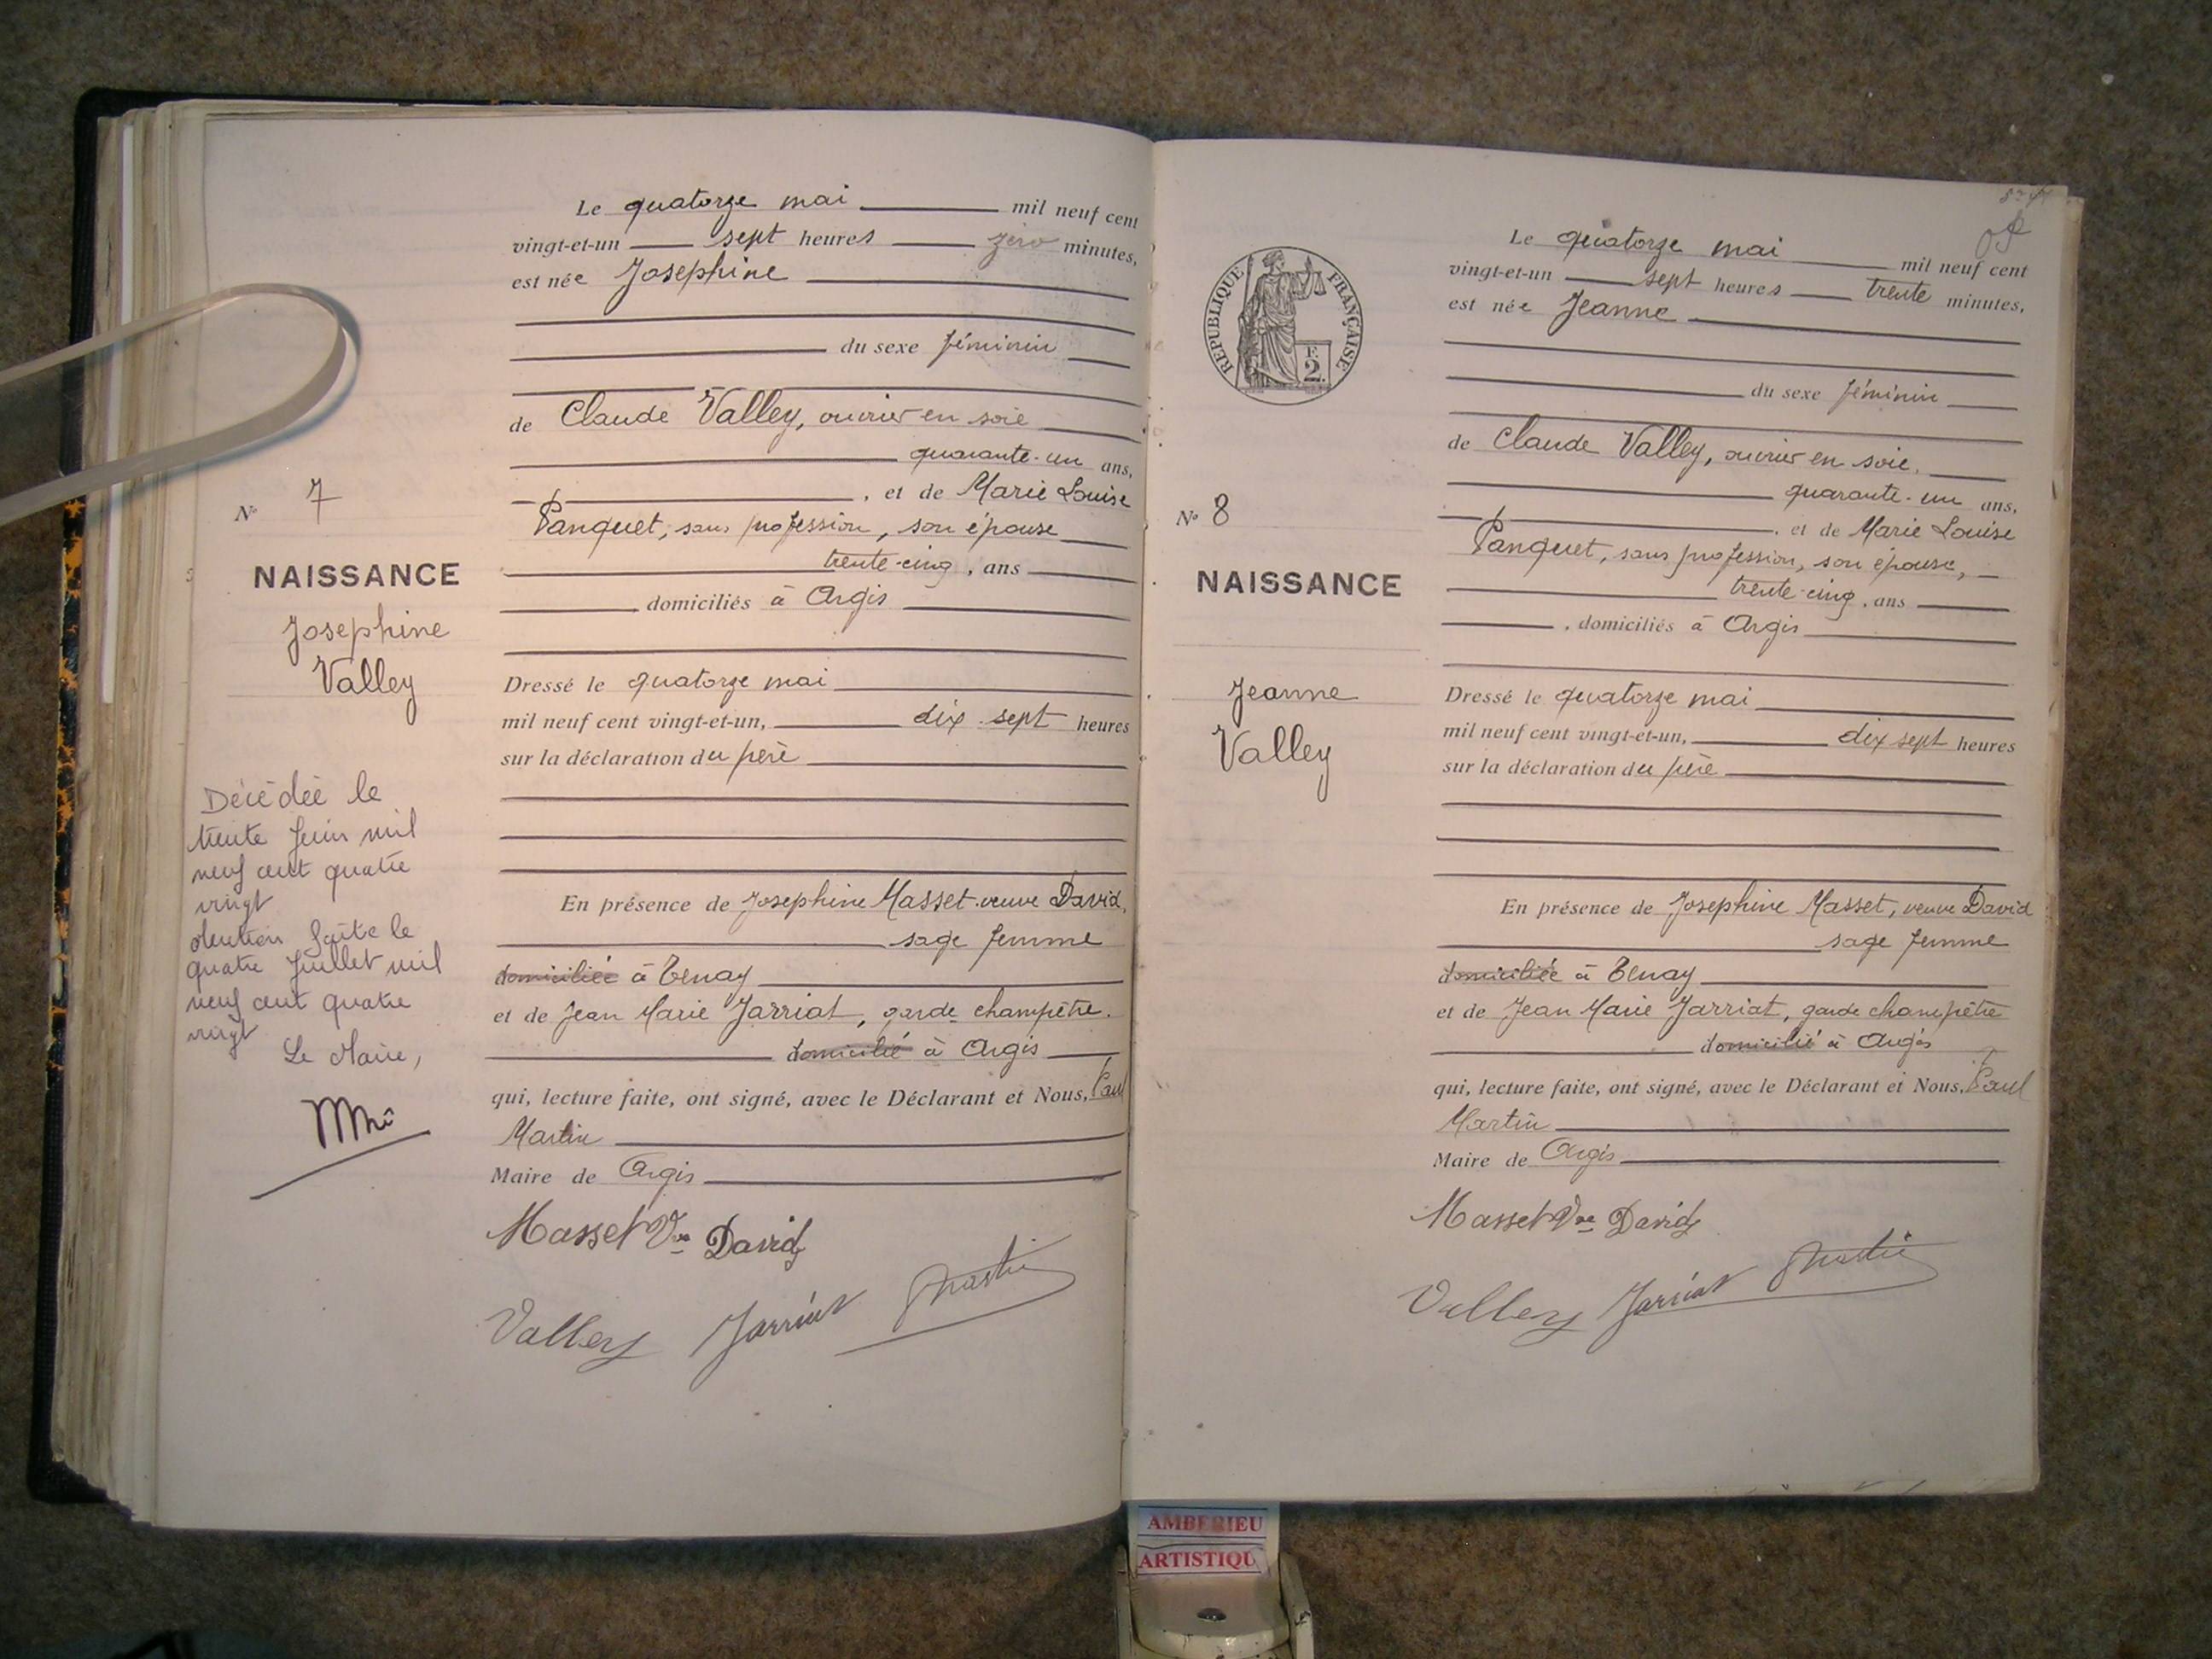 Le quatorze mai mil neuf cent
vingt-et-un sept heures zéro minutes,
est née Josephine
du sexe féminin
de Claude Valley, ouvrier en soie
quarante-un ans,
, et de Marie Louise
Panquet, sans profession, son épouse
trente-cinq, ans
domiciliés à Argis
Dressé le quatorze mai
mil neuf cent vingt-et-un, dix-sept heures
sur la déclaration du père
En présence de Josephine Masset veuve David,
sage femme
domiciliée à Tenay
et de Jean Marie Jarriat, garde champêtre.
domicilié à Argis
qui, lecture faite, ont signé, avec le Déclarant et Nous, Paul
Martin
Maire de Argis
Masset Vve David
Valley Jarriat Martin
N° 7
NAISSANCE
Josephine
Valley
Décédée le
trente Juin mil
neuf cent quatre
vingt
Mention faite le
quatre Juillet mil
neuf cent quatre
vingt
Le Maire,
Le quatorze mai mil neuf cent
vingt-et-un sept heures trente minutes,
est née Jeanne
du sexe féminin
de Claude Valley, ouvrier en soie,
quarante-un ans,
, et de Marie Louise
Panquet, sans profession, son épouse,
trente-cinq, ans
, domiciliés à Argis
Dressé le quatorze mai
mil neuf cent vingt-et-un, dix sept heures
sur la déclaration du père
En présence de Josephine Masset, veuve David
sage femme
domiciliée à Tenay
et de Jean Marie Jarriat, garde champêtre
domicilié à Argis
qui, lecture faite, ont signé, avec le Déclarant et Nous, Paul
Martin
Maire de Argis
Masset Vve David
Valley Jarriat Martin
REPUBLIQUE FRANÇAISE
F.
2.
N° 8
NAISSANCE
Jeanne
Valley
AMBERIEU
ARTISTIQU